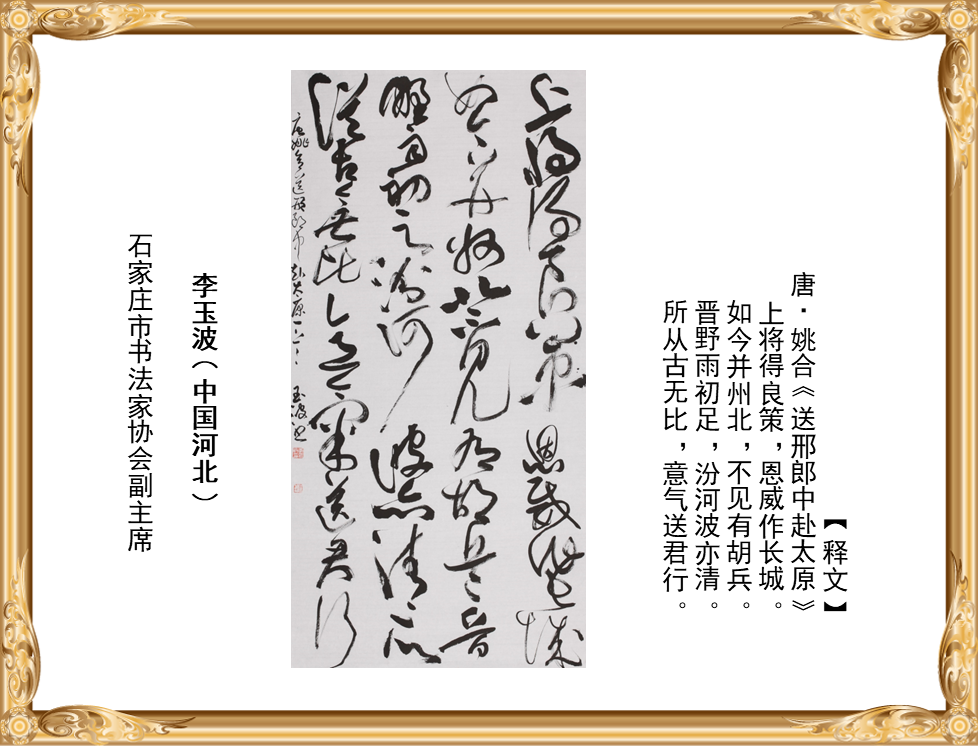 【释文】
唐·姚合《送邢郎中赴太原》
上将得良策，恩威作长城。
如今并州北，不见有胡兵。
晋野雨初足，汾河波亦清。
所从古无比，意气送君行。
上将得良策恩威作长城
如今并州北不见有胡兵晋
野雨初足汾河波亦清所
从古无比意气送君行
唐姚合送邢郎中赴太原一首 玉波书
李玉波（中国河北）
石家庄市书法家协会副主席